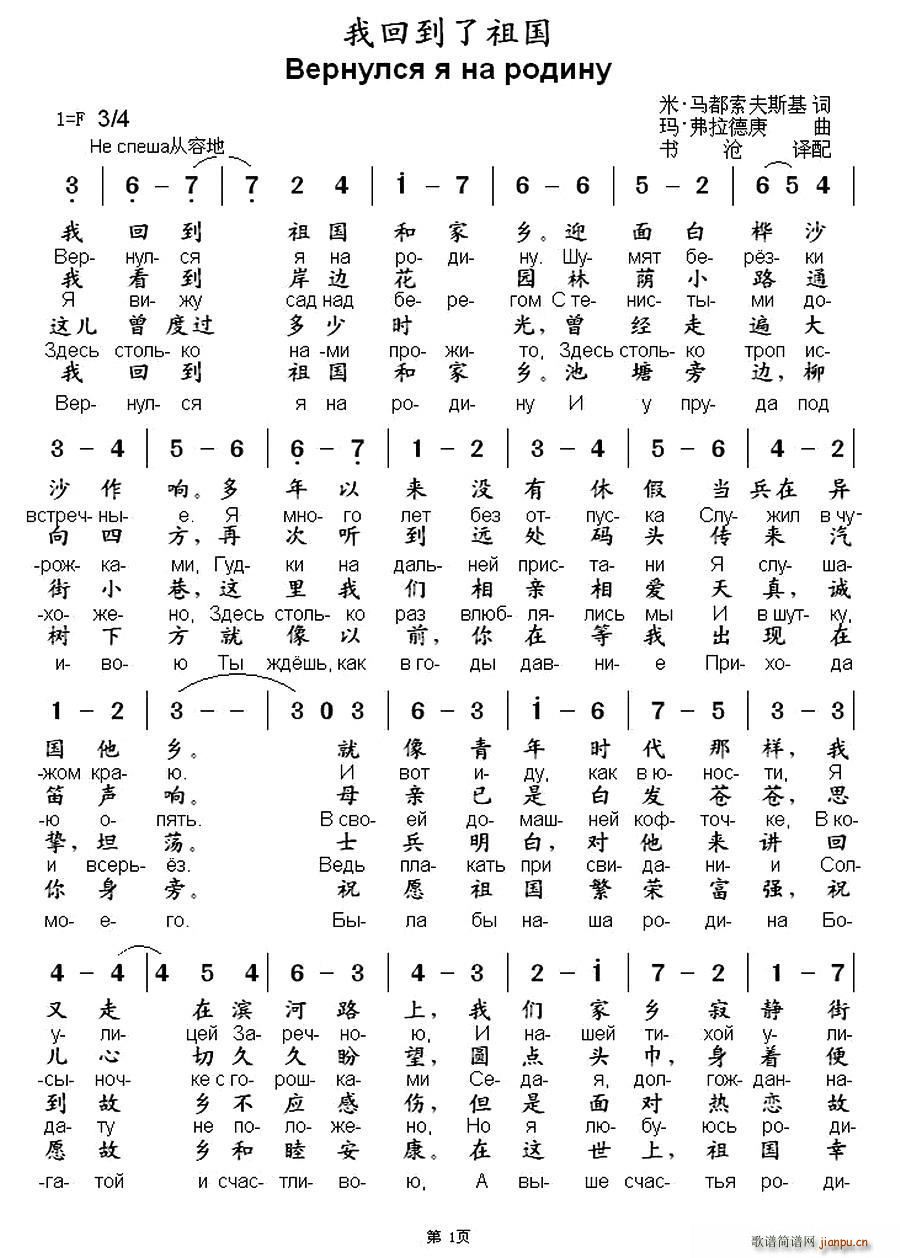 我回到了祖国
Вернулся я на родину
1=F 3/4
米·马都索夫斯基 词
玛·弗拉德庚 曲
书 沧 译配
Не спеша从容地
3 | 6 – 7 | 7 2 4 | 1 – 7 | 6 – 6 | 5 – 2 | 6 5 4 |
我 回 到 祖 国 和 家 乡。迎 面 白 桦 沙
Вер- нул- ся я на ро- ди- ну. Шу- мят бе- рёз- ки
我 看 到 岸 边 花 园 林 荫 小 路 通
Я ви- жу сад над бе- ре- гом С те- нис- ты- ми до-
这儿 曾 度过 多 少 时 光，曾 经 走 遍 大
Здесь столь- ко на -ми про- жи- то, Здесь столь- ко троп ис-
我 回 到 祖 国 和 家 乡。池 塘 旁 边，柳
Вер- нул- ся я на ро- ди- ну И у пру- да под
3 – 4 | 5 – 6 | 6 – 7 | 1 – 2 | 3 – 4 | 5 – 6 | 4 – 2 |
沙 作 响。多 年 以 来 没 有 休 假 当 兵在 异
встреч- ны- е. Я мно- го лет без от- пус- ка Слу- жил в чу-
向 四 方，再 次 听 到 远 处 码 头 传 来 汽
-рож- ка- ми, Гуд- ки на даль- ней прис- та- ни Я слу- ша-
街 小 巷，这 里 我 们 相 亲 相 爱 天 真，诚
-хо- же- но, Здесь столь- ко раз влюб- ля- лись мы И в шут- ку,
树 下 方 就 像 以 前，你 在 等 我 出 现 在
и- во- ю Ты ждёшь, как в го- ды дав- ни- е При- хо- да
1 – 2 | 3 – – | 3 0 3 | 6 – 3 | 1 – 6 | 7 – 5 | 3 – 3 |
国 他 乡。 就 像 青 年 时 代 那 样，我
-жом кра- ю. И вот и- ду, как в ю- нос- ти, Я
笛 声 响。 母 亲 已 是 白 发 苍 苍，思
-ю о- пять. В сво- ей до- маш- ней коф- точ- ке, В ко-
挚，坦 荡。 士 兵 明 白，对 他 来 讲 回
и всерь- ёз. Ведь пла- кать при сви- да- ни- и Сол-
你 身 旁。 祝 愿 祖 国 繁 荣 富 强，祝
мо- е- го. Бы- ла бы на- ша ро- ди- на Бо-
4 – 4 | 4 5 4 | 6 – 3 | 4 – 3 | 2 – 1 | 7 – 2 | 1 – 7 |
又 走 在 滨 河 路 上，我 们 家 乡 寂 静 街
у- ли- цей За- реч- но- ю, И на- шей ти- хой у- ли-
儿 心 切 久 久 盼 望，圆 点 头 巾，身 着 便
-сы- ноч- ке с го- рош- ка- ми Се- да- я, дол- гож- дан- на-
到 故 乡 不 应 感 伤，但 是 面 对 热 恋 故
да- ту не по- ло- же- но, Но я лю- бу- юсь ро- ди-
愿 故 乡 和 睦 安 康。在 这 世 上，祖 国 幸
-га- той и счас- тли- во- ю, А вы- ше счас- тья ро- ди-
第 1页
歌谱简谱网
jianpu.cn